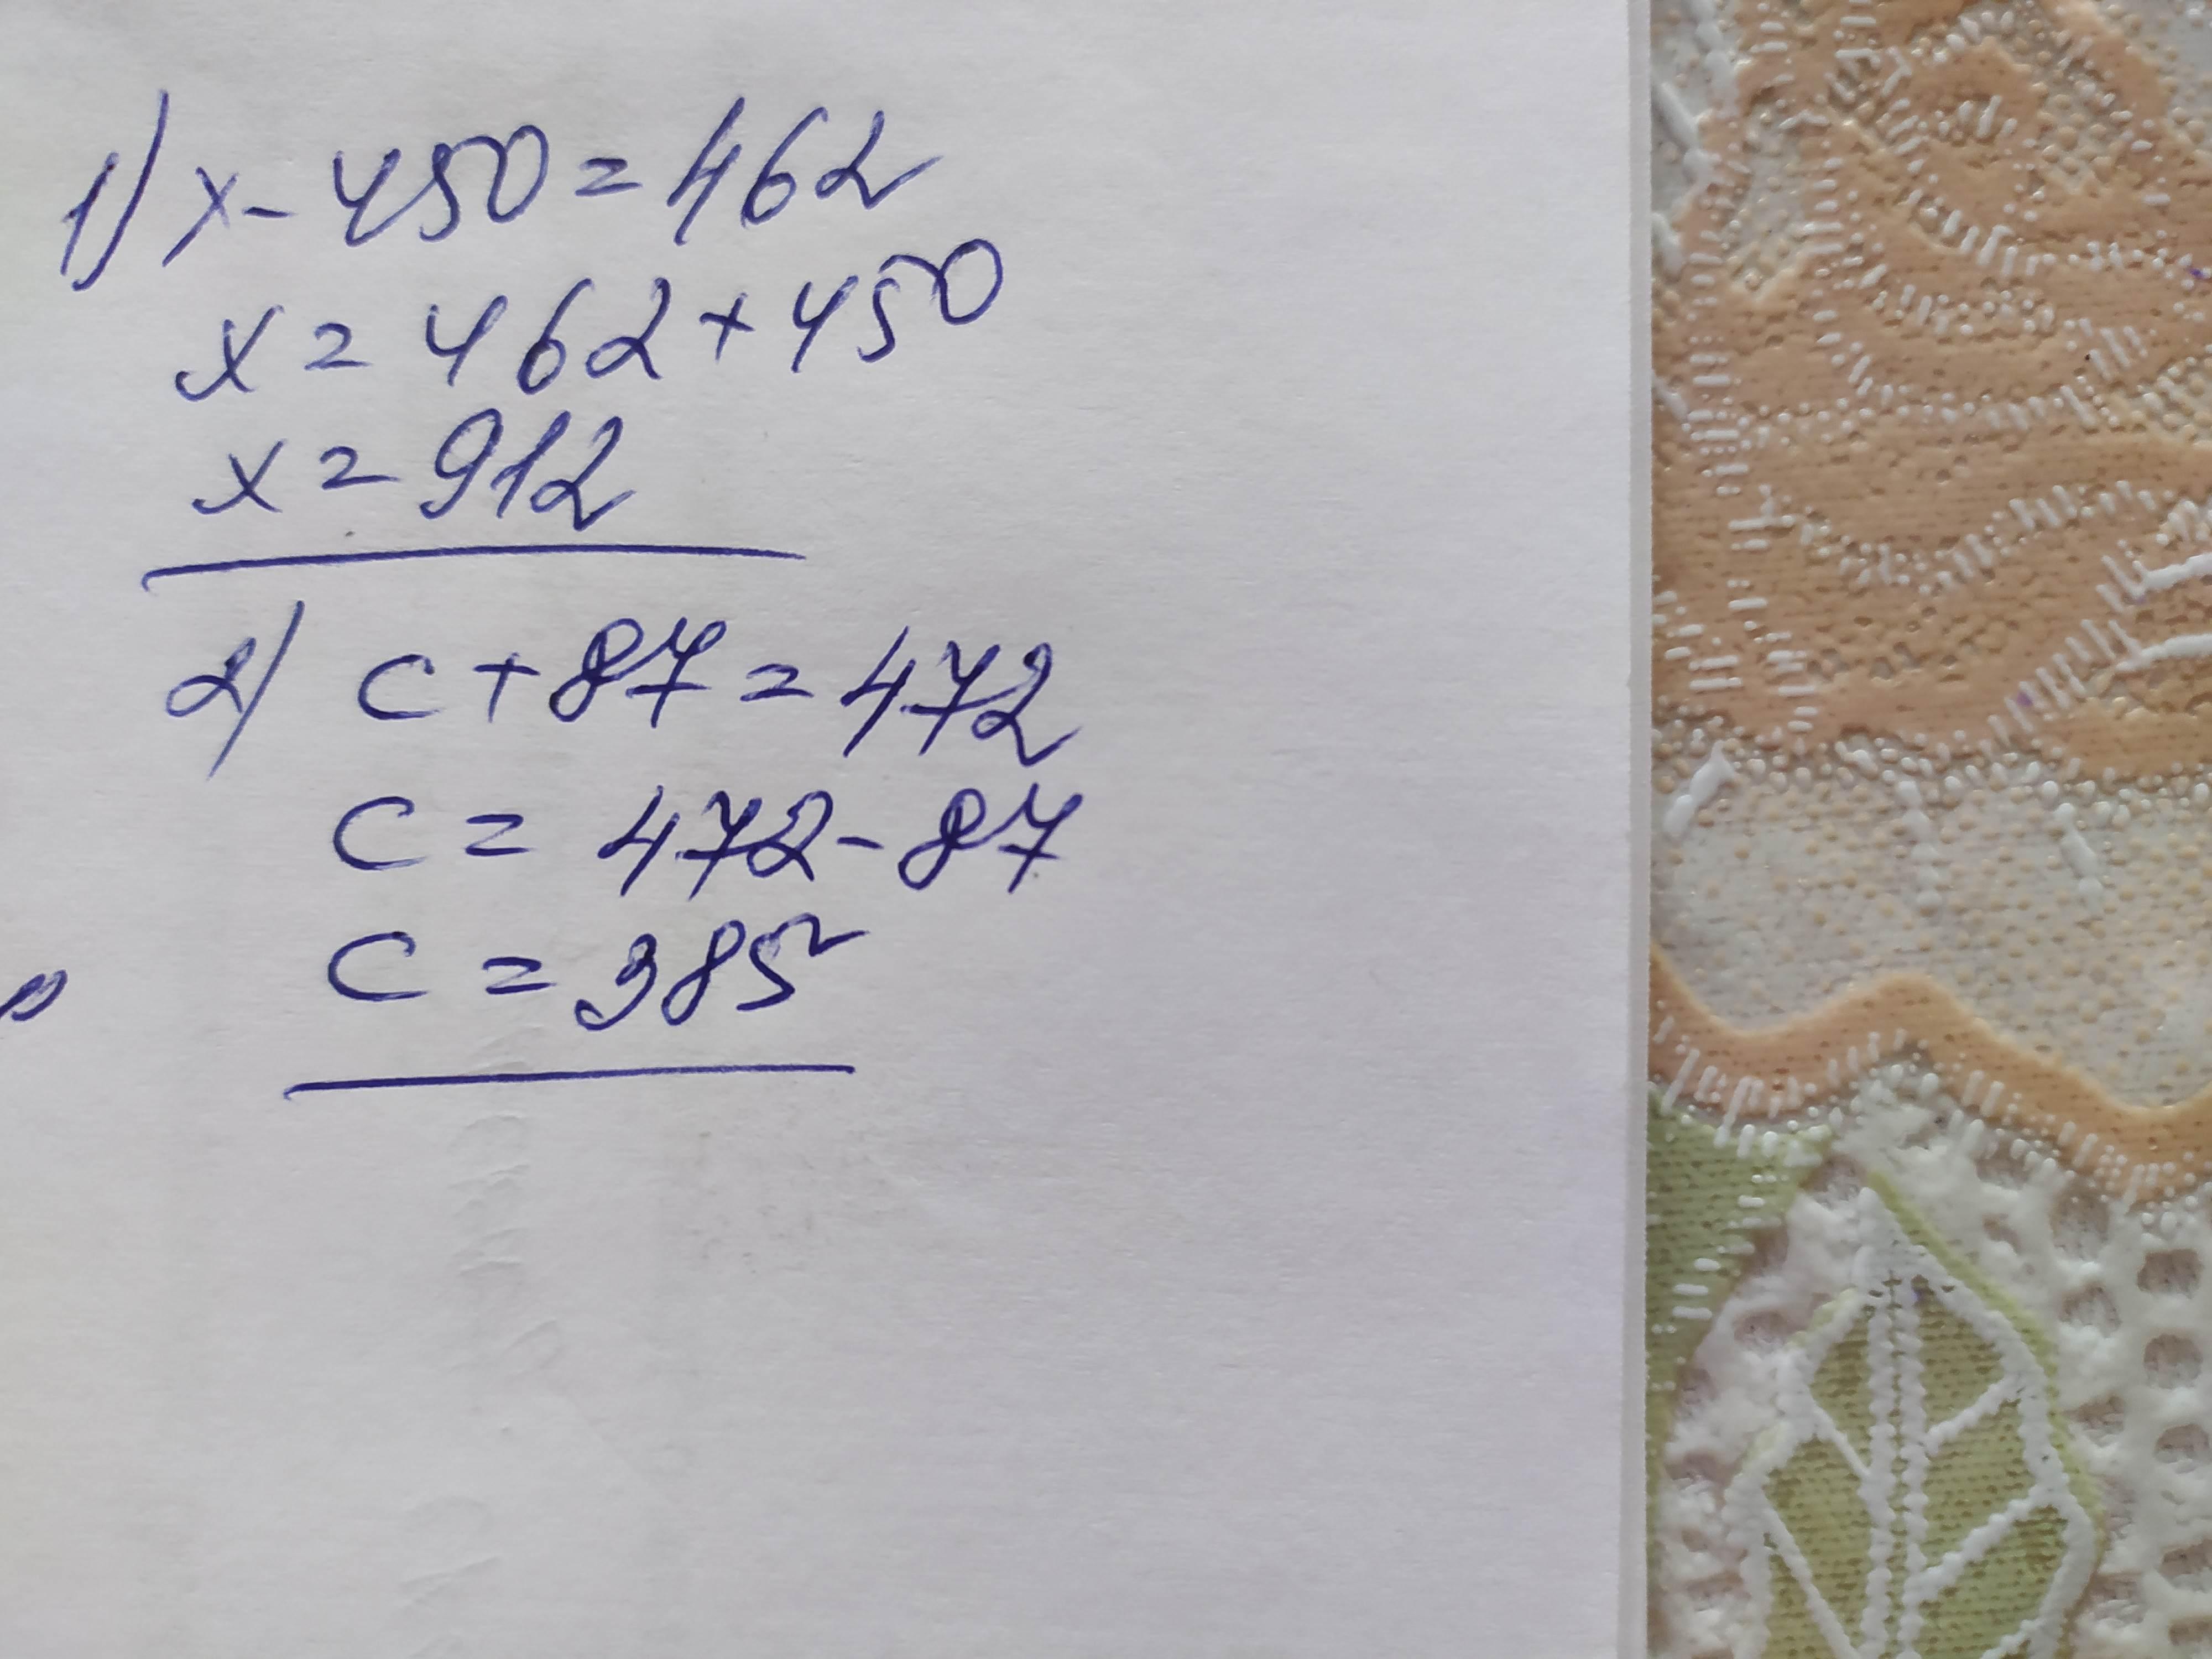 1) x - 450 = 462
x = 462 + 450
x = 912
2) c + 87 = 472
c = 472 - 87
c = 385